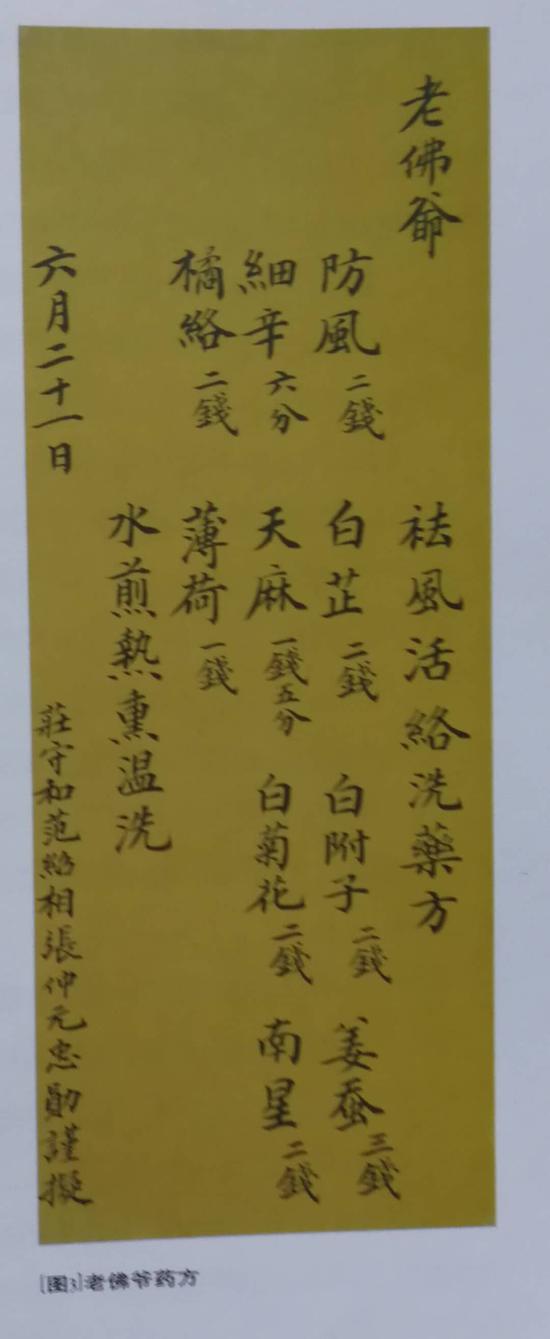 老佛爺
祛風活絡洗藥方
防風二錢 白芷二錢 白附子二錢 姜蚕三錢
細辛六分 天麻一錢五分 白菊花二錢 南星二錢
橘絡二錢 薄荷一錢
水煎熱熏温洗
六月二十一日
莊守和范紹相張仲元忠勛謹擬
[图3]老佛爷药方